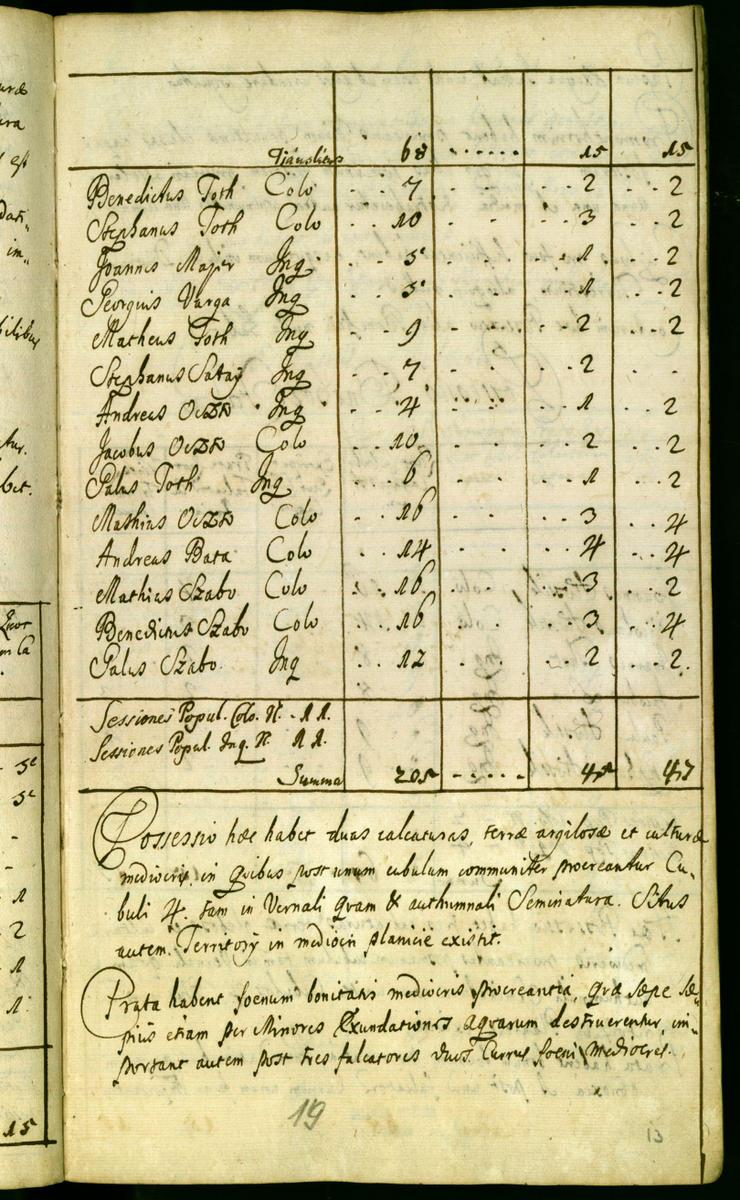 68 ...... 15 15
Benedictus Toth Colo .. 7 ... .. 2 .. 2
Stephanus Toth Colo .. 10 ... .. 3 .. 2
Joannis Majer Inq. .. 5 ... .. 1 .. 2
Georgius Varga Inq .. 5 ... .. 1 .. 2
Matheus Toth Inq .. 9 ... .. 2 .. 2
Stephanus Inq .. 7 ... .. 2 .. .
Andreas Inq .. 4 ... .. 1 .. 2
Jacobus Colo .. 10 ... .. 2 .. 2
Palus Toth Inq .. 6 ... .. 1 .. 2
Mathius Colo .. 16 ... .. 3 .. 4
Andreas Bata Colo .. 14 ... .. 4 .. 4
Mathias Szabo Colo .. 16 ... .. 3 .. 2
Benedictus Szabo Colo .. 16 ... .. 3 .. 4
Palus Szabo Inq .. 12 ... .. 2 .. 2.
Sessiones Popul. Colo. N. 11.
Sessiones Popul. Inq. N. 11.
Summa 205 ..... 45 47
Possessio hæc habet duas calcaturas, terræ argilosæ et culturæ
mediocris, in quibus post unum cubulum communiter procreantur Cu-
buli 4. tam in Vernali quam & authumnali Seminatura. Situs
autem Territorÿ in mediocri planicie existit.
Prata habent foenum bonitatis mediocris procreantia, quæ sæpe sæ-
pius etiam per Minores Exundationes aquarum destruerentur, im-
portant autem post tres falcatores duos Currus foeni mediocres.
19
13
15